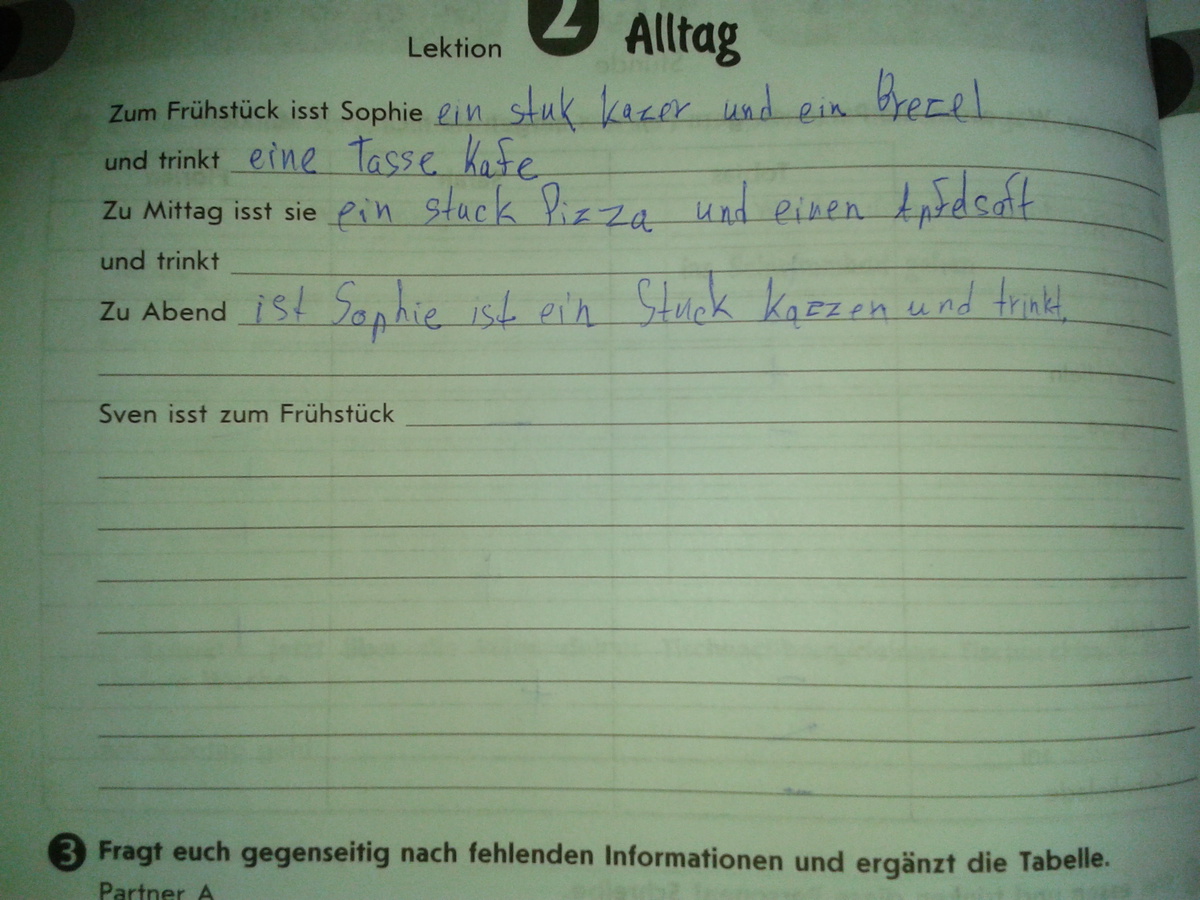 Lektion 2 Alltag
Zum Frühstück isst Sophie ein stuk kazer und ein Brezel
und trinkt eine Tasse Kafe
Zu Mittag isst sie ein stuck Pizza und einen Apfelsaft
und trinkt
Zu Abend ist Sophie ist ein Stuck kazzen und trinkt.
Sven isst zum Frühstück
3 Fragt euch gegenseitig nach fehlenden Informationen und ergänzt die Tabelle.
Partner A